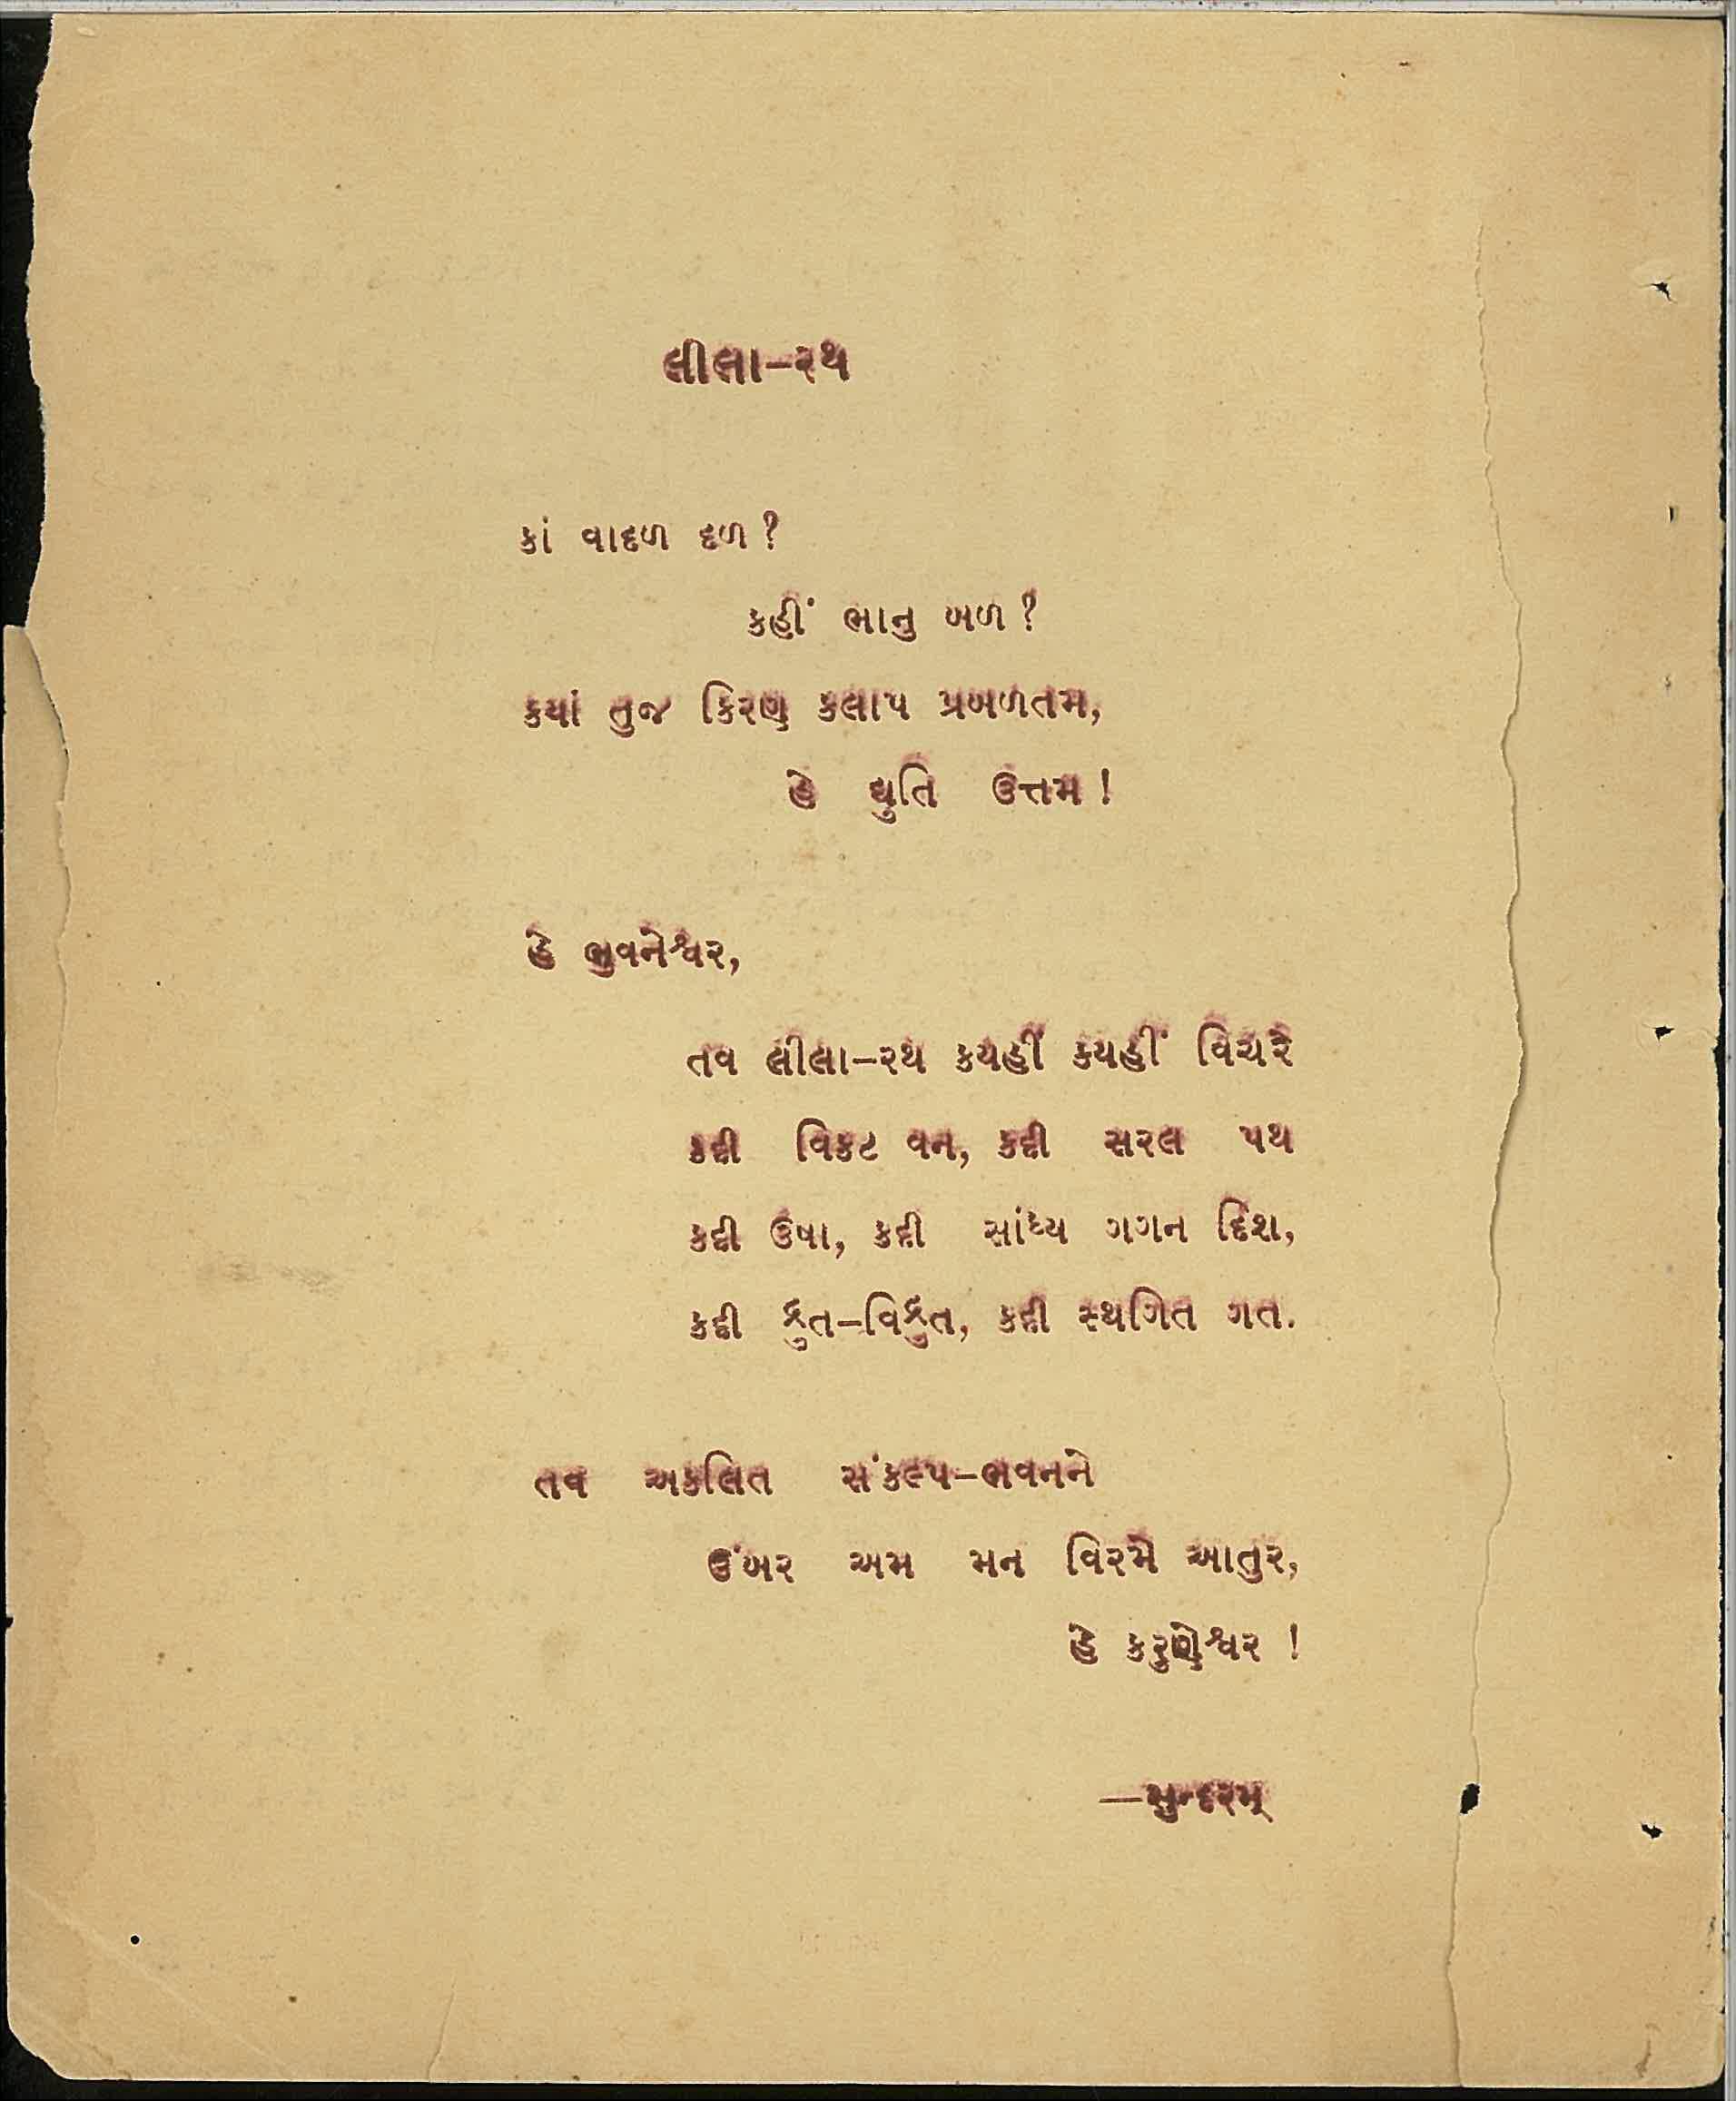 લીલા–રથ
કાં વાદળ દળ ?
કહીં ભાનુ બળ ?
કયાં તુજ કિરણ કલાપ પ્રબળતમ,
હે દ્યુતિ ઉત્તમ !
હે ભુવનેશ્વર,
તવ લીલા–રથ કયહીં કયહીં વિચરે
કદી વિકટ વન, કદી સરલ પથ
કદી ઉષા, કદી સાંધ્ય ગગન દિશ,
કદી દ્રુત–વિદ્રુત, કદી સ્થગિત ગત.
તવ અકલિત સંકલ્પ–ભવનને
ઉંબર અમ મન વિરમે આતુર,
હે કરુણેશ્વર !
—સુન્દરમ્